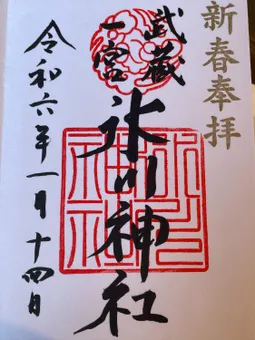 新春奉拝
武蔵
一宮
氷川神社
令和六年一月十四日